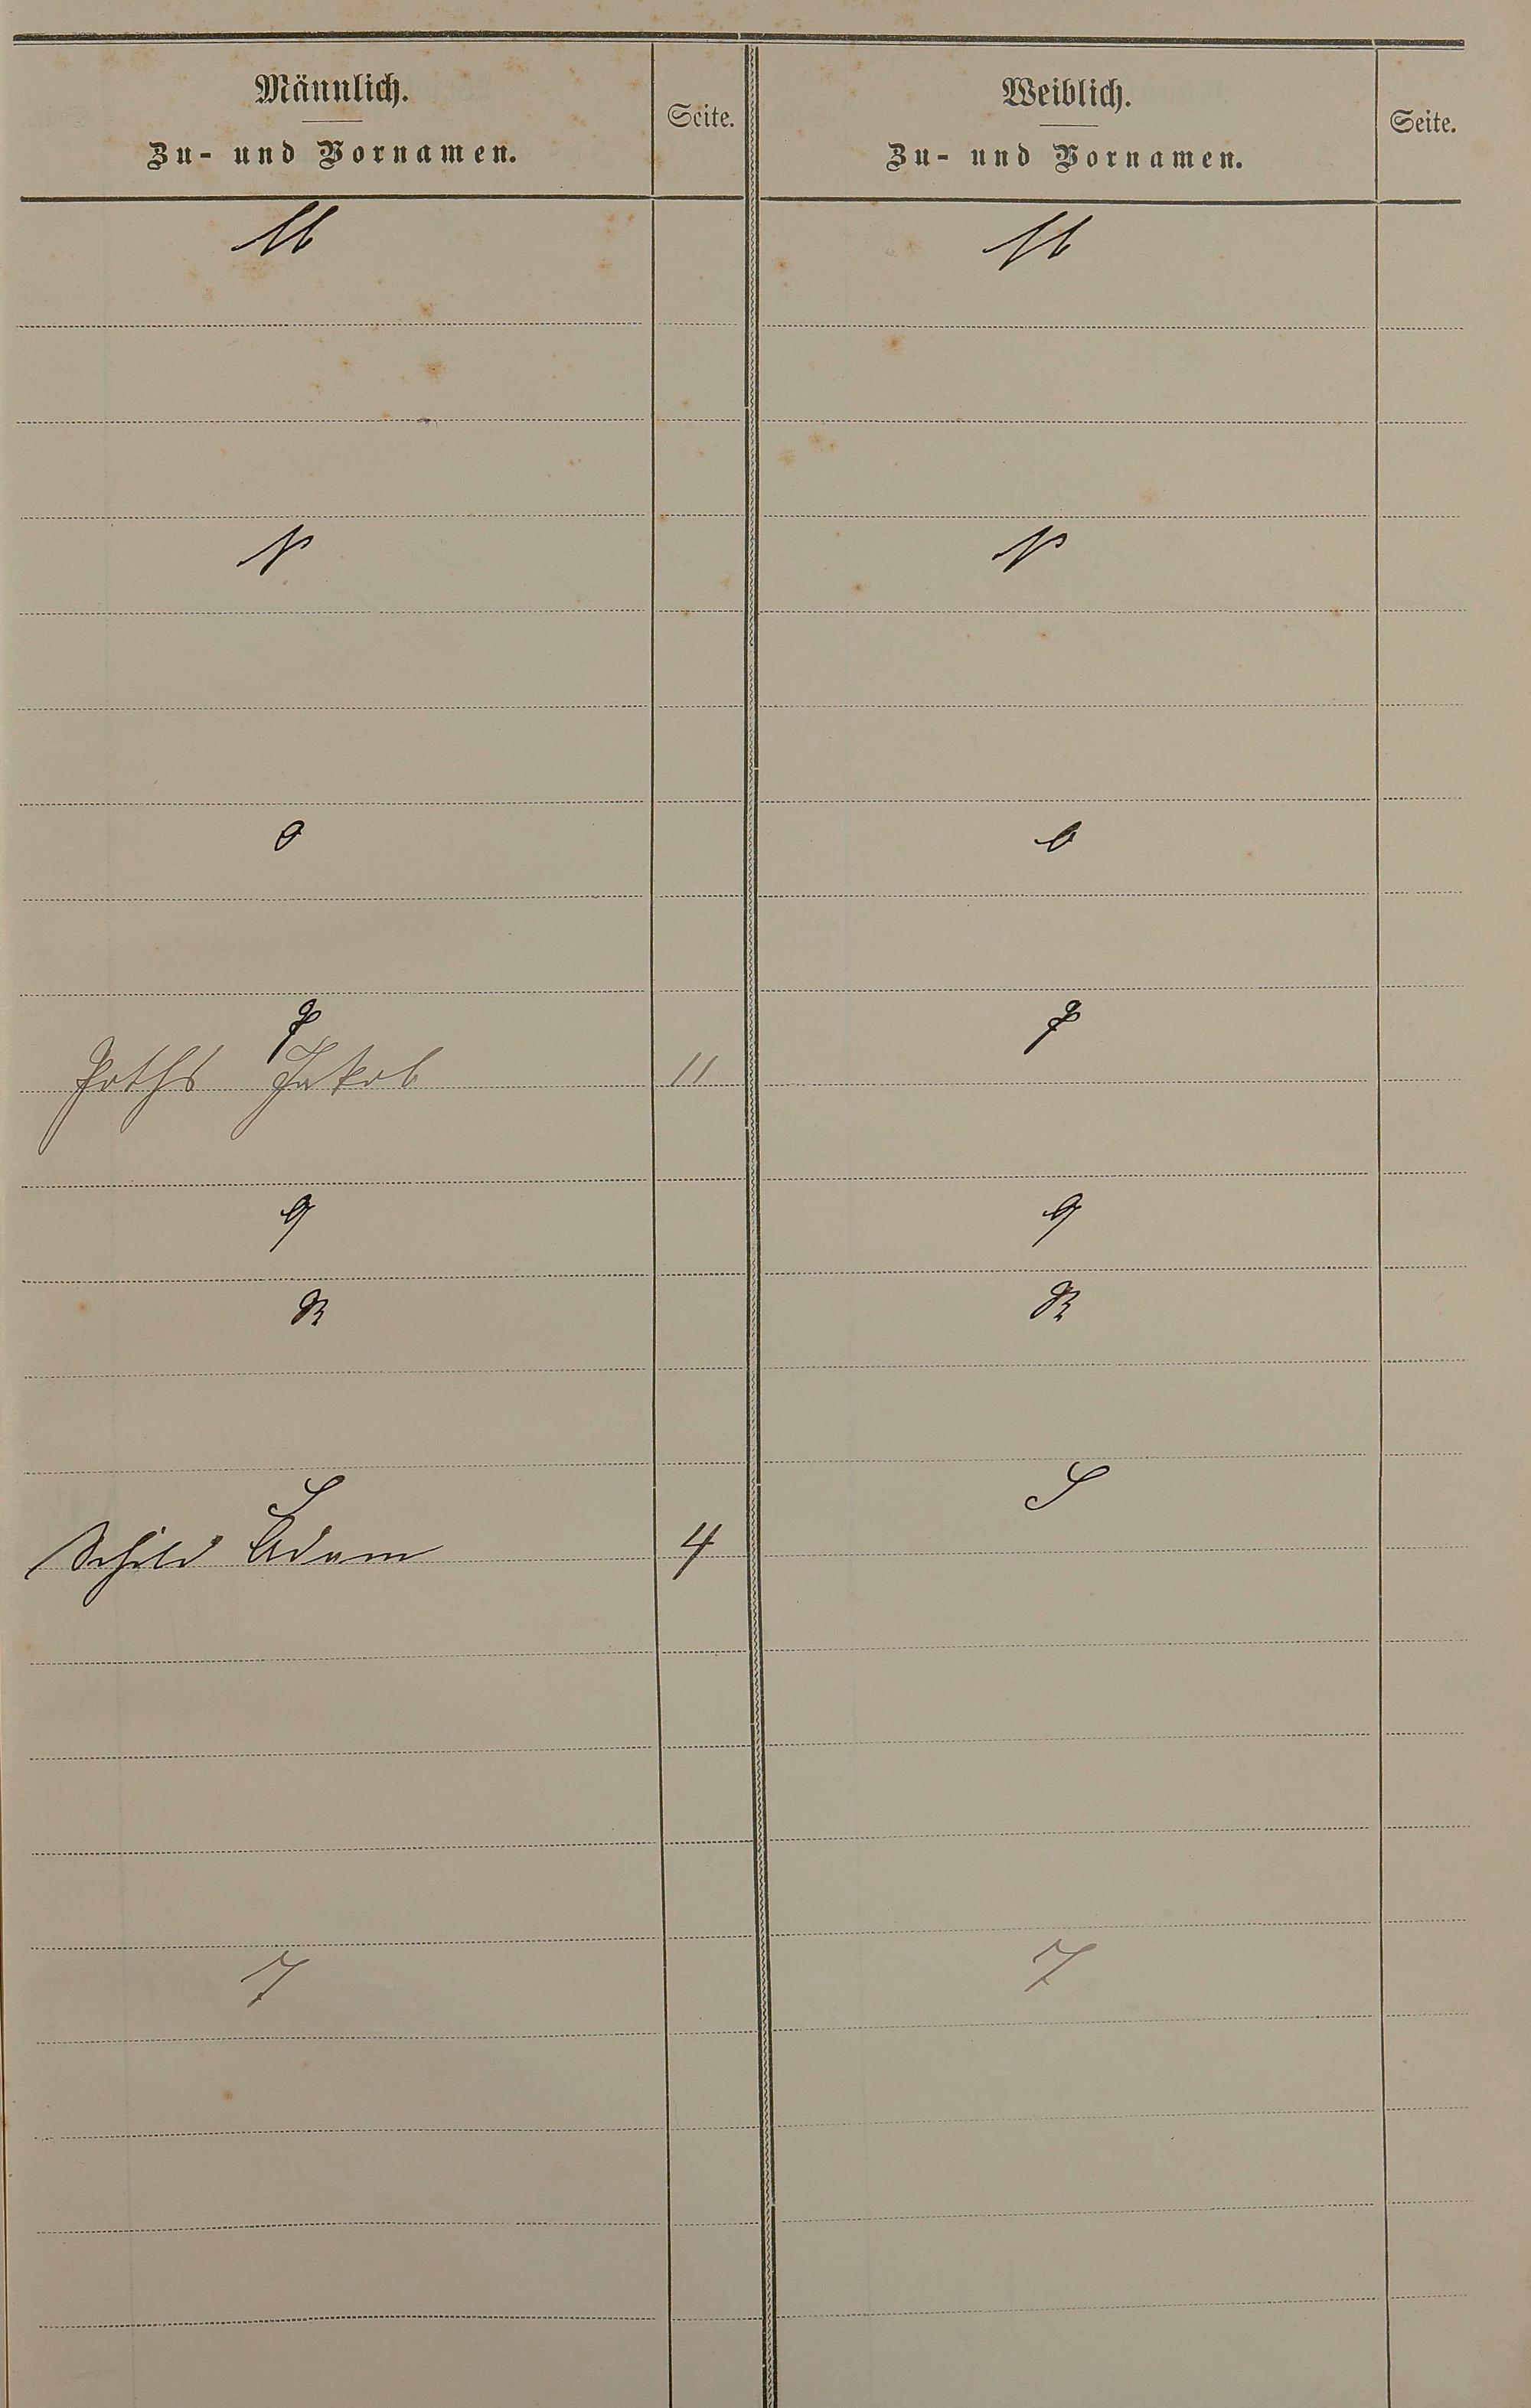 Männlich. Weiblich.
Zu- und Vornamen. Seite. Zu- und Vornamen. Seite.
M M
N N
O O
P P
Poths Jakob 11
Q Q
R R
S S
Schild Adam 4
T T